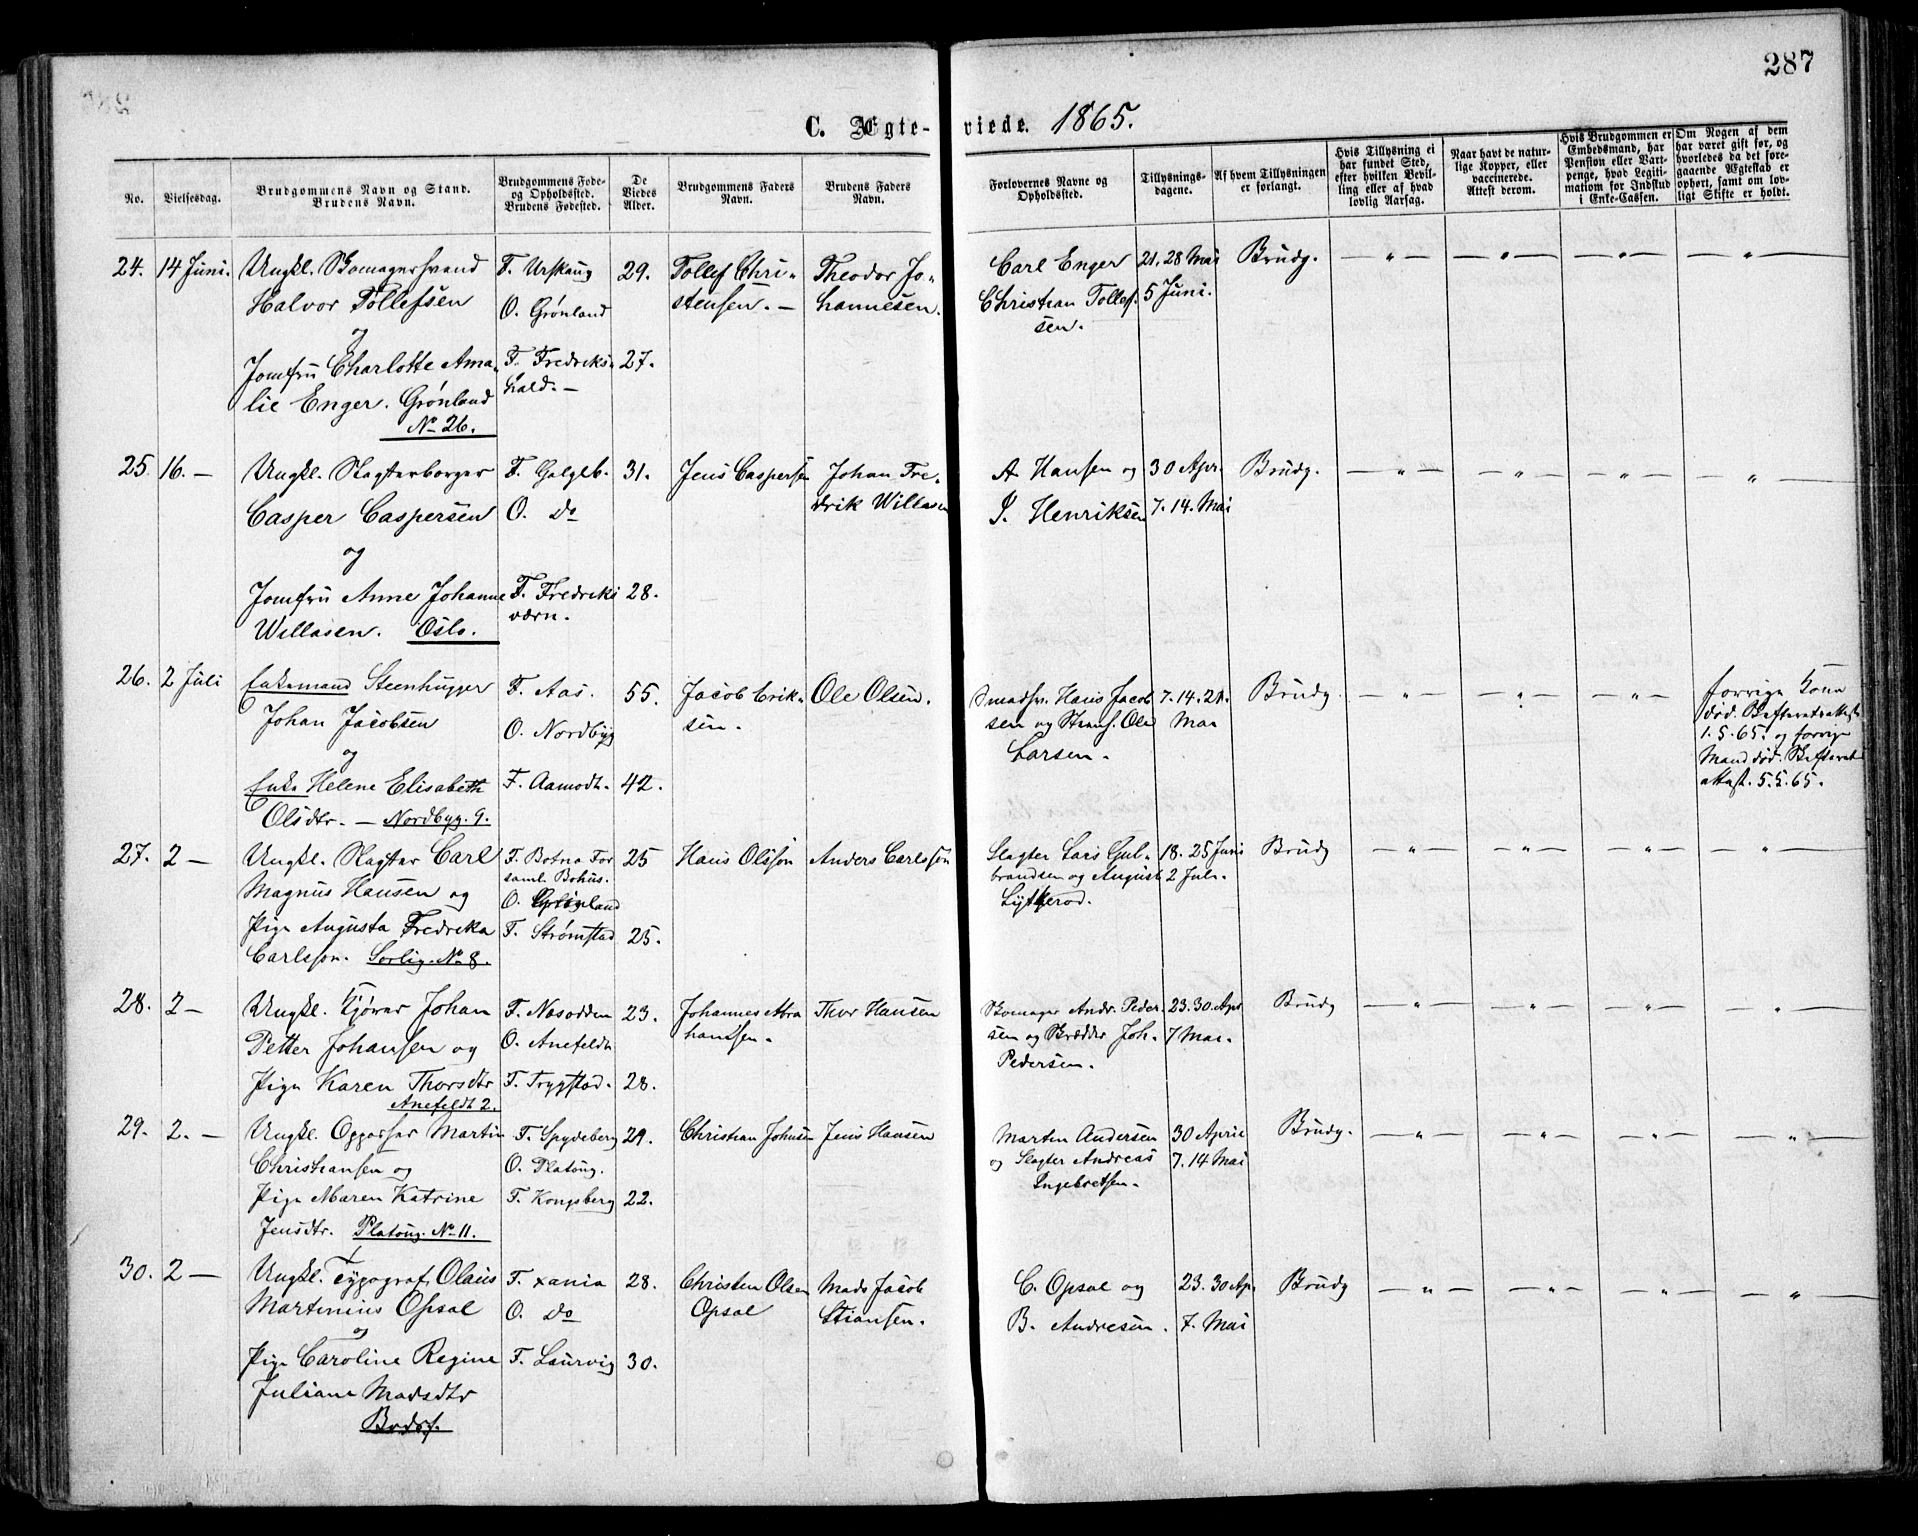 287
C. Ægte- viede. 1865.
No. Vielsesdag. Brudgommens Navn og Stand. Brudens Navn. Brudgommens Føde- og Opholdssted. Brudens Fødested. De Viedes Alder. Brudgommens Faders Navn. Brudens Faders Navn. Forlovernes Navne og Opholdssted. Tillysningsdagene. Af hvem Tillysningen er forlangt. Hvis Tillysning ei har fundet Sted, efter hvilken Bevilling eller af hvad lovlig Aarsag. Naar havt de naturlige Kopper, eller vaccinerede. Attest derom. Hvis Brudgommen er Embedsmand, har Pension eller Vartpenge, hvad Legitimation for Indskud i Enke-Cassen. Om Nogen af dem har været gift før, og hvorledes da det foregaaende Ægteskab er ophørt, samt om lovligt Skifte er holdt.
24. 14 Juni. Ungkl. Skomagersvend F. Urskoug 29. Tollef Chri- Theodor Jo- Carl Enger 21. 28 Mai Brudg. — „ — — „ — — „ — — „ —
Halvor Tollefsen O. Grønland stensen. — hannesen. Christian Tollef- 5 Juni.
og sen.
Jomfru Charlotte Ama- F. Fredriks- 27.
lie Enger. Grønland hald. —
No 26.
25. 16. — Ungkl. Slagterborger F. Galgeb. 31. Jens Caspersen Johan Fre- A Hansen og 30 Apr. Brudg. — „ — — „ — — „ — — „ —
Casper Caspersen O. do drik Willasen J. Henriksen 7. 14. Mai
og
Jomfru Anne Johanne F. Fredriks 28.
Willasen. Oslo. værn.
26. 2 Juli Enkemand Steenhugger F. Aas. 55. Jacob Erik- Ole Olsen. Smedsv. Hans Jacob 7. 14. 21. Brudg. — „ — — „ — — „ — forrige Kone
Johan Jacobsen O. Nordbyg sen. sen og Ole Mai død. Skifteretsattest
og Larsen. 1. 5. 65. og forrige
Enke Helene Elisabeth F. Aamodt. 42. Mand død. Skifterets
Olsdtr. — Nordbyg. 9. attest. 5. 5. 65.
27. 2 — Ungkl. Slagter Carl F. Botna For 25 Hans Olsson Anders Carlsson Slagter Lars Gul- 18. 25 Juni Brudg — „ — — „ — — „ — — „ —
Magnus Hansen og saml. Bohus. brandsen og August 2 Juli.
O. Grønland Lytkerod.
Pige Augusta Fredrika F. Strømstad 25.
Carlsson. Sorlig. No 8.
28. 2 — Ungkl. Kjører Johan F. Nesodden 23. Johannes Abra Thor Hansen Skomager Andr. Peder- 23. 30 Apr Brudg — „ — — „ — — „ — — „ —
Petter Johansen og O. Anefeldt hamsen. sen og Skrædder Joh. 7 Mai.
Pige Karen Thorsdtr F. Trygstad. 28. Pedersen.
Anefeldt 2.
29. 2. — Ungkl. Oppasser Martin F. Spydeberg 29. Christian Johnsen Jens Hansen Martin Andersen 30 April Brudg. — „ — — „ — — „ — — „ —
Christiansen og O. Platoug. og Slagter Andreas 7. 14 Mai
Pige Maren Katrine F. Kongsberg 22. Ingebretsen.
Jensdtr. Platoug. No 11.
30. 2 — Ungkl. Typograf Olaus F. xania 28. Christen Olsen Mads Jacob C. Opsal og 23. 30 Ap. Brudg — „ — — „ — — „ — — „ —
Martinius Opsal O. do Opsal Stiansen. B. Andresen. 7. Mai
og
Pige Caroline Regine F. Laurvig 30.
Juliane Madsdtr
Bodsf.